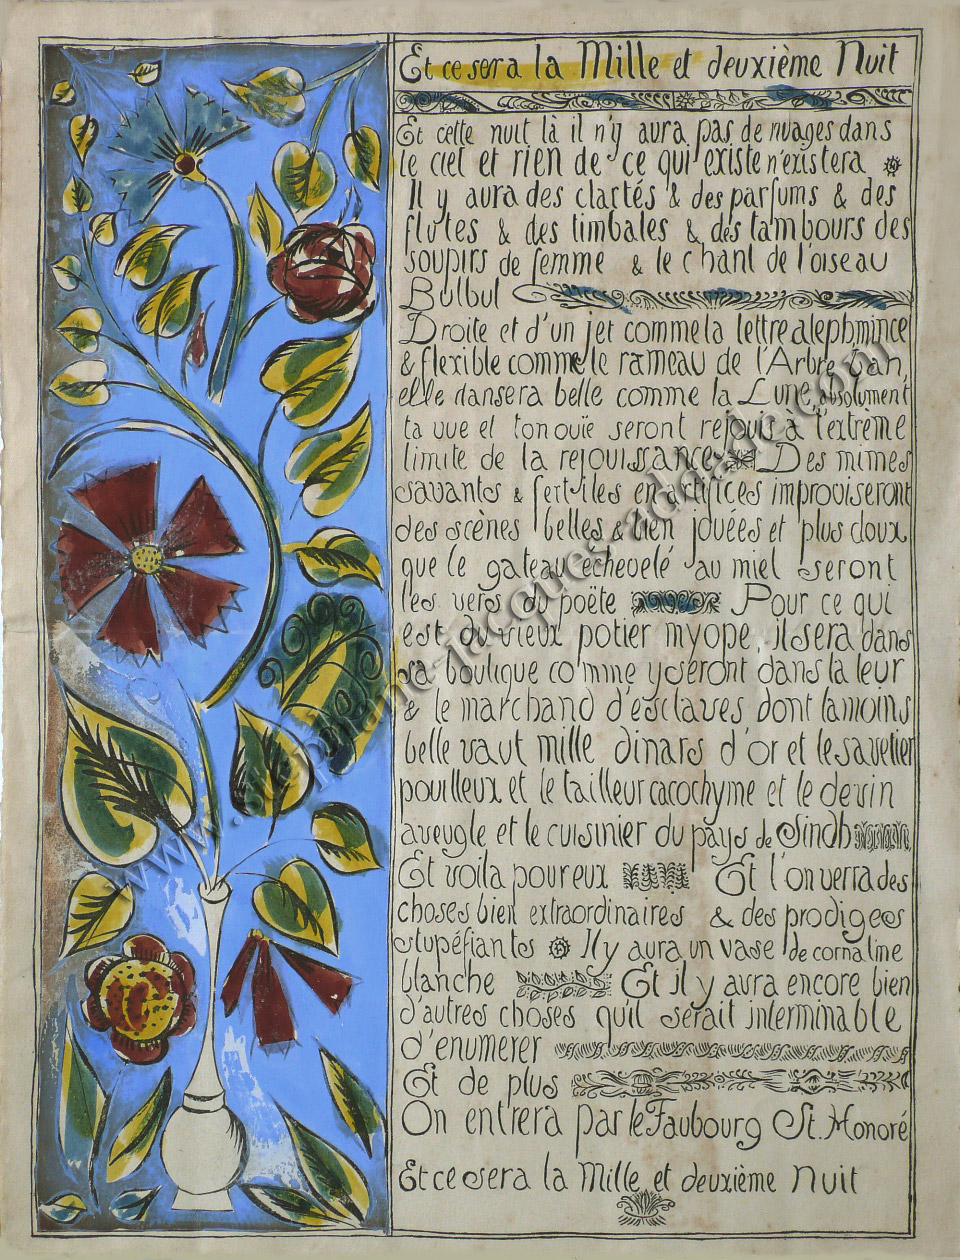 Et ce sera la Mille et deuxième Nuit
Et cette nuit là il n'y aura pas de nuages dans
le ciel et rien de ce qui existe n'existera
Il y aura des clartés & des parfums & des
flutes & des timbales & des tambours des
soupirs de femme & le chant de l'oiseau
Bulbul
Droite et d'un jet comme la lettre aleph, mince
& flexible comme le rameau de l'Arbre Van,
elle dansera belle comme la Lune, absolument
ta vue et ton ouïe seront rejouis à l'extrème
limite de la rejouissance Des mimes
savants & fertiles en artifices improviseront
des scènes belles & bien jouées et plus doux
que le gateau échevelé au miel seront
les vers du poëte Pour ce qui
est du vieux potier myope, il sera dans
sa boutique comme y seront dans la leur
& le marchand d'esclaves dont la moins
belle vaut mille dinars d'or et le savetier
pouilleux et le tailleur cacochyme et le devin
aveugle et le cuisinier du pays de Sindh
Et voila pour eux Et l'on verra des
choses bien extraordinaires & des prodiges
stupéfiants Il y aura un vase de cornaline
blanche Et il y aura encore bien
d'autres choses qu'il serait interminable
d'enumerer
Et de plus
On entrera par le Faubourg St. Honoré
Et ce sera la Mille et deuxième Nuit